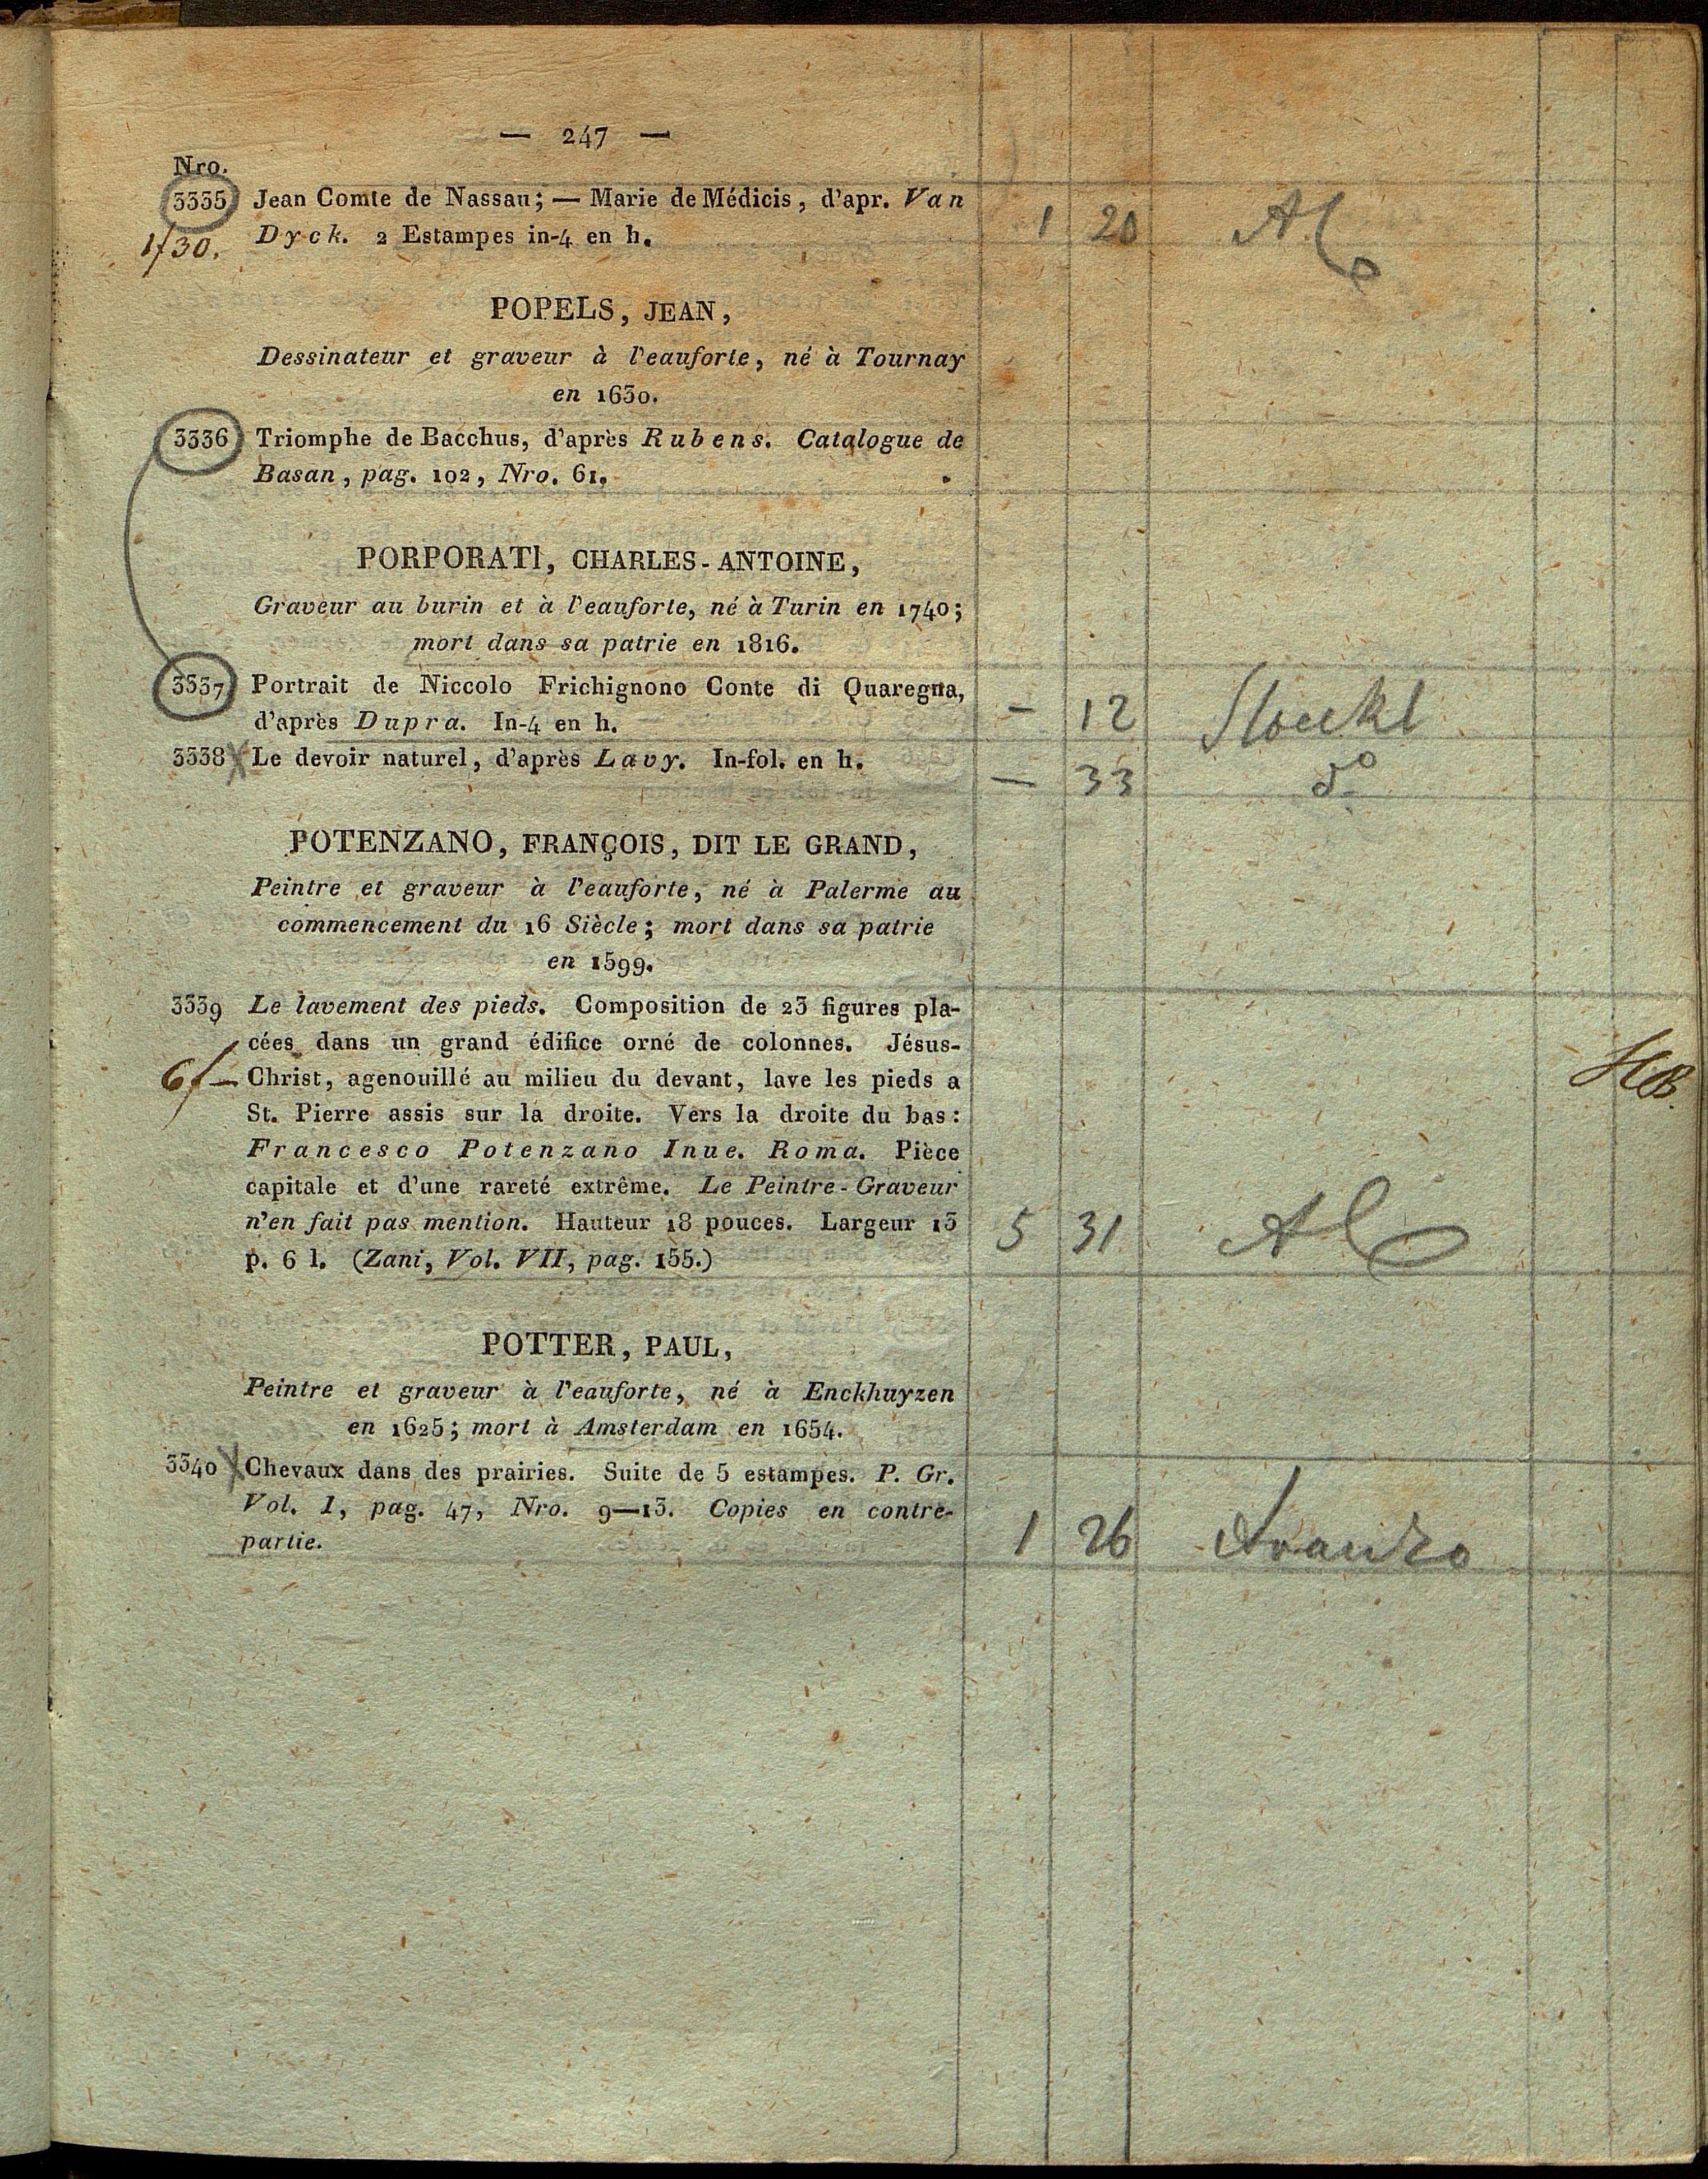 — 247 —
Nro.
3335 Jean Comte de Nassau; — Marie de Médicis, d'apr. Van
1f30. Dyck. 2 Estampes in-4 en h. 1 20 Al
POPELS, JEAN,
Dessinateur et graveur à l'eauforte, né à Tournay
en 1630.
3336 Triomphe de Bacchus, d'après Rubens. Catalogue de
Basan, pag. 102, Nro. 61.
PORPORATI, CHARLES-ANTOINE,
Graveur au burin et à l'eauforte, né à Turin en 1740;
mort dans sa patrie en 1816.
3337 Portrait de Niccolo Frichignono Conte di Quaregna,
d'après Dupra. In-4 en h. — 12 Stoeckl
3338 X Le devoir naturel, d'après Lavy. In-fol. en h. — 33 do
POTENZANO, FRANÇOIS, DIT LE GRAND,
Peintre et graveur à l'eauforte, né à Palerme au
commencement du 16 Siècle; mort dans sa patrie
en 1599.
3339 Le lavement des pieds. Composition de 23 figures pla-
cées dans un grand édifice orné de colonnes. Jésus-
6f— Christ, agenouillé au milieu du devant, lave les pieds a
St. Pierre assis sur la droite. Vers la droite du bas:
Francesco Potenzano Inue. Roma. Pièce
capitale et d'une rareté extrême. Le Peintre-Graveur
n'en fait pas mention. Hauteur 18 pouces. Largeur 13 5 31 Al
p. 6 l. (Zani, Vol. VII, pag. 155.)
POTTER, PAUL,
Peintre et graveur à l'eauforte, né à Enckhuyzen
en 1625; mort à Amsterdam en 1654.
3340 X Chevaux dans des prairies. Suite de 5 estampes. P. Gr.
Vol. 1, pag. 47, Nro. 9—13. Copies en contre-
partie. 1 26